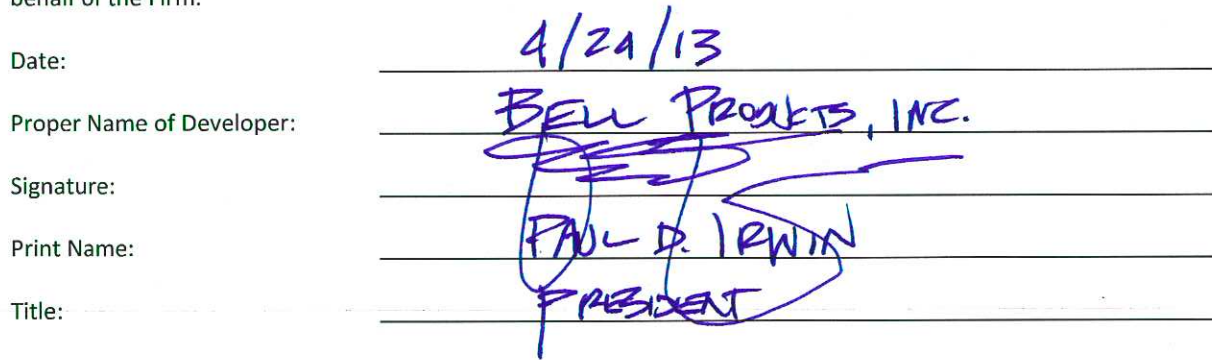 behalf of the Firm.
Date: 4/24/13
Proper Name of Developer: BELL PRODUCTS, INC.
Signature:
Print Name: PAUL D. IRWIN
Title: PRESIDENT